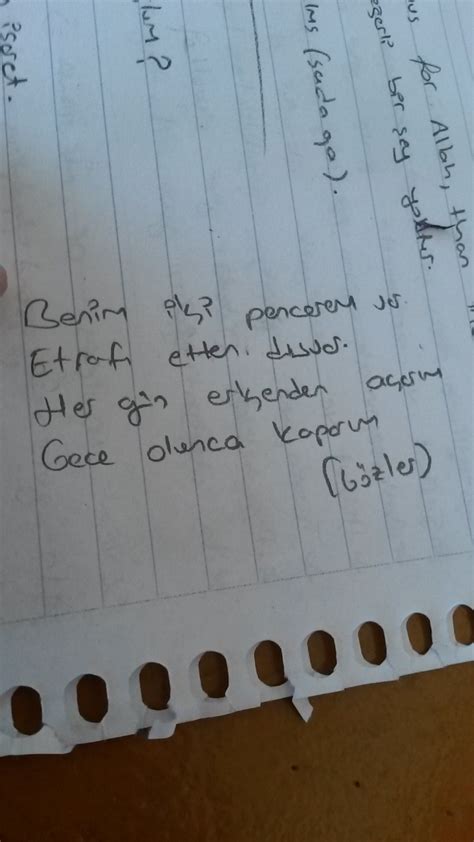 işaret.
lum?
lms (sadaqa).
us for Allah, than
ber şey yoktur.
Benim iki pencerem var
Etrafı etten duvar.
Her gün erkenden açarım
Gece olunca kaparım
(Gözler)